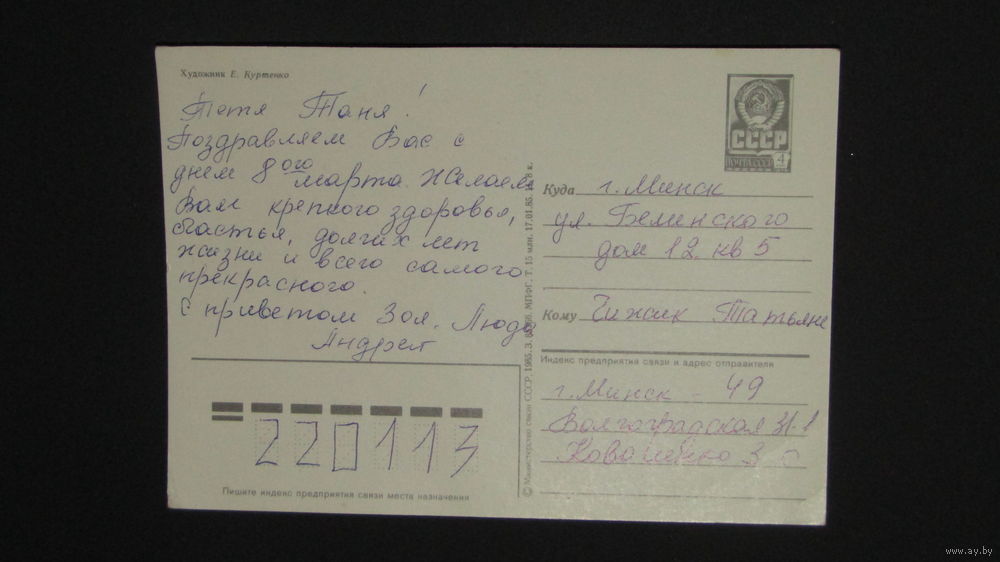 Художник Е. Куртенко
Тетя Таня!
Поздравляем Вас с
днем 8ого марта. Желаем
Вам крепкого здоровья,
счастья, долгих лет
жизни и всего самого
прекрасного.
С приветом Зоя. Люда
Андрей
220113
Пишите индекс предприятия связи места назначения
© Министерство связи СССР. 1985. З. МПФГ. Т. 15 млн. 17.01.85. 8 к.
СССР
ПОЧТА СССР 4
Куда г. Минск
ул. Белинского
дом 12. кв 5
Кому Чижик Татьяне
Индекс предприятия связи и адрес отправителя
г. Минск - 49
Волгоградская
www.ay.by